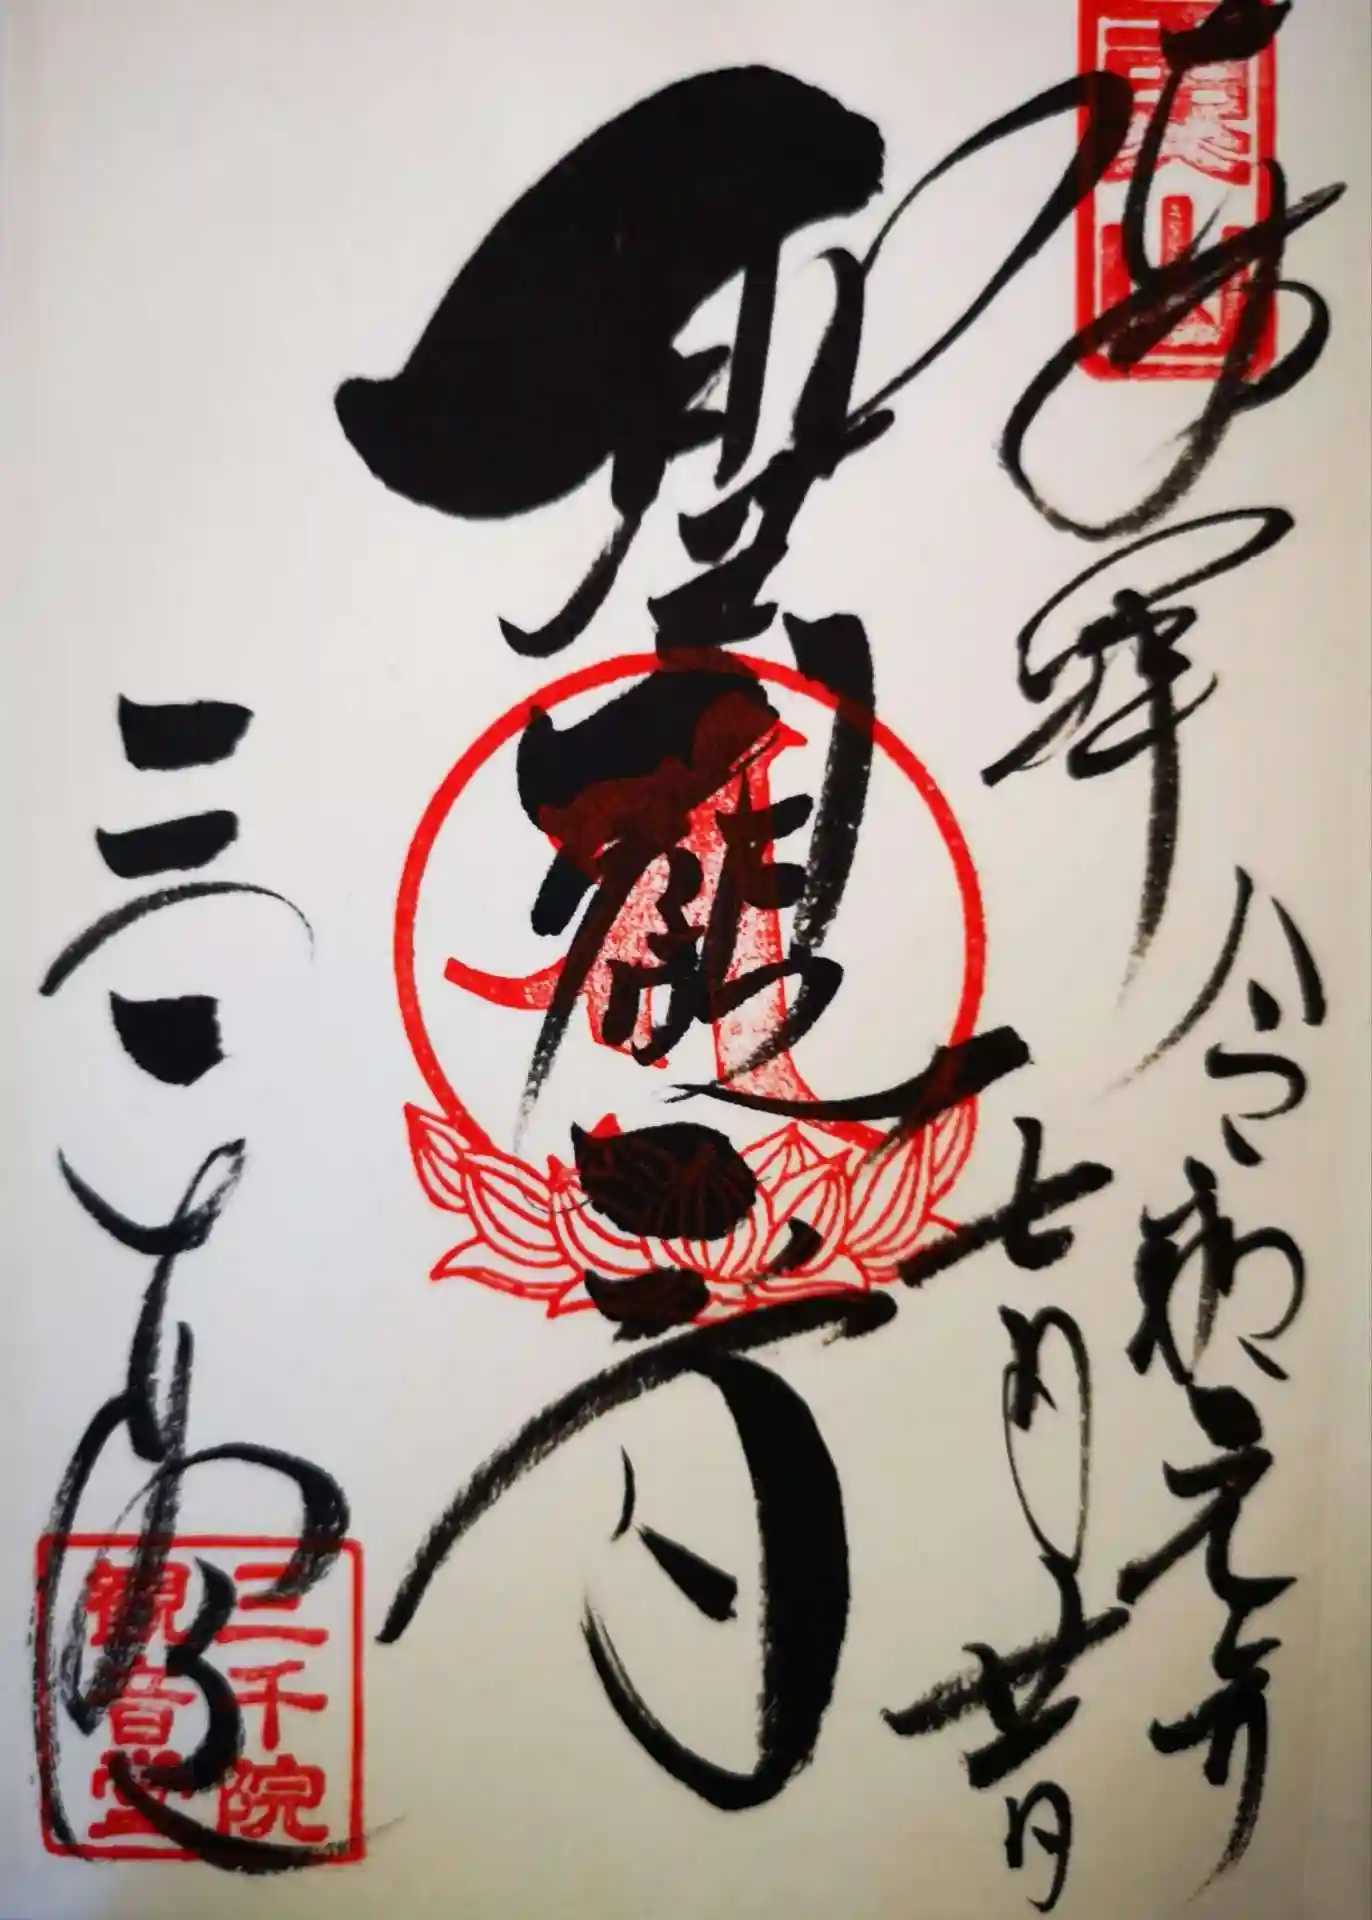 魚山
奉拝
令和元年
七月廿日
聖観音
三千院
三千院
観音堂